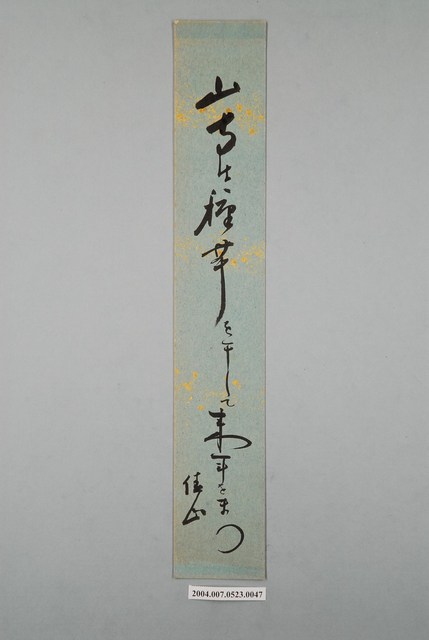 山寺は種芋を干して来年をまつ
佳山
2004.007.0523.0047